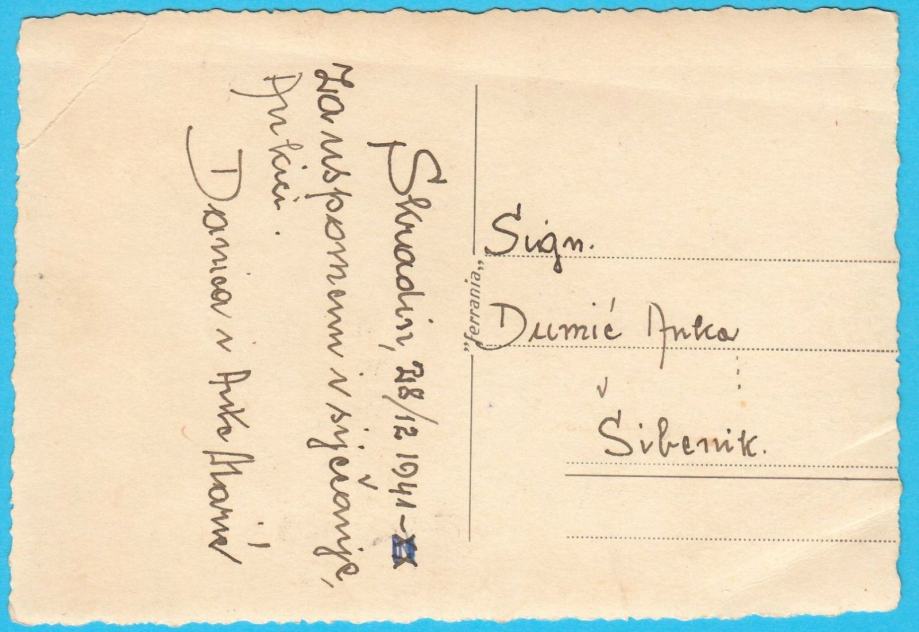 Skradin, 28/12 1941-
Za uspomenu i siječanje,
Ankici.
Danica i Anka Marić
„Ferrania„
Sign.
Dumić Anka
Šibenik.